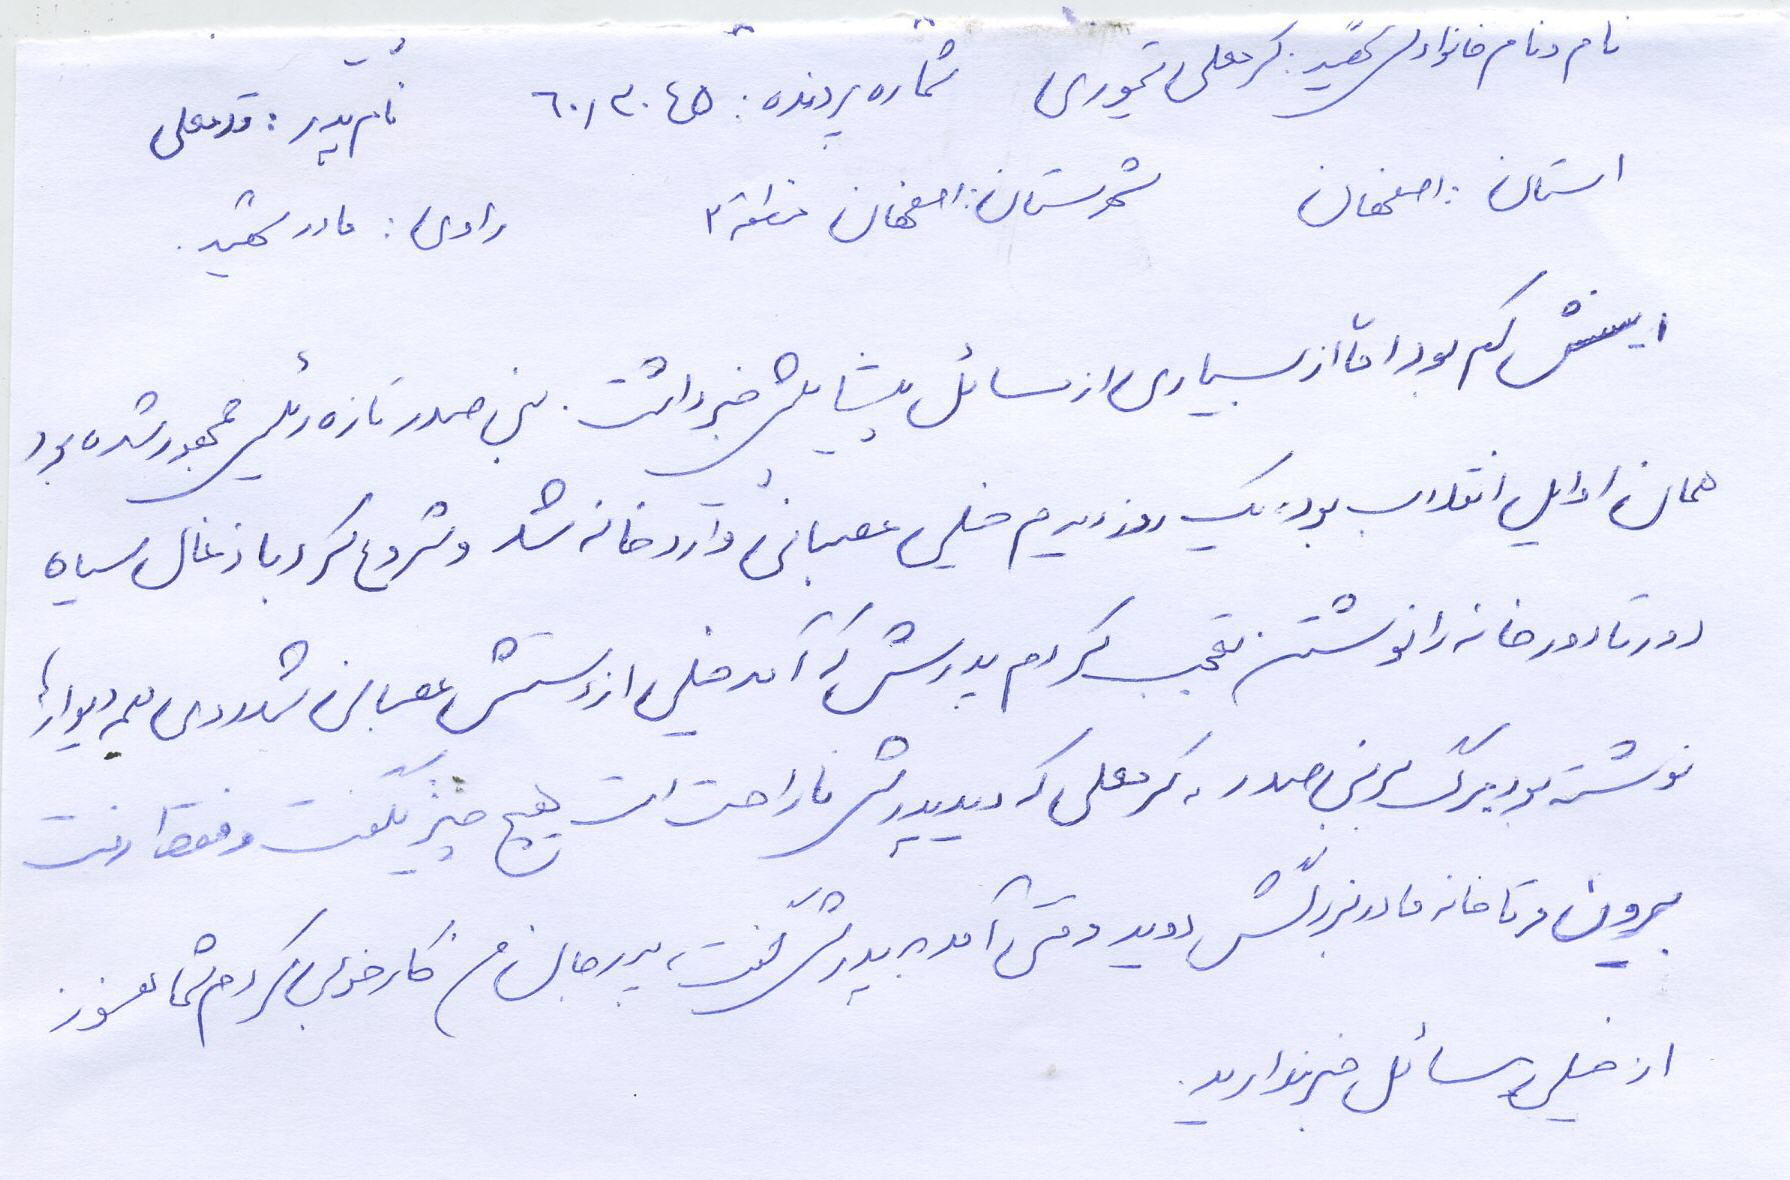 نام و نام خانوادگی شهید: کرمعلی تیموری شماره پرونده: ۶۰۱۳۰۴۵ نام پدر: قدمعلی
استان: اصفهان شهرستان: اصفهان منطقه ۲ راوی: مادر شهید.
سنش کم بود اما از بسیاری از مسائل پشت پرده خبر داشت. بنی صدر تازه رئیس جمهور شده بود
همان اوایل انقلاب بود، یک روز دیدم خیلی عصبانی وارد خانه شد و شروع کرد با زغال سیاه
دور تا دور خانه را نوشتن تعجب کردم پدرش که آمد خیلی از دستش عصبانی شد روی همه دیوارها
نوشته بود مرگ بر بنی صدر، کرمعلی که دید پدرش ناراحت است هیچ چیز نگفت و فقط رفت
بیرون و تا خانه مادربزرگش دوید وقتی آمد به پدرش گفت، پدر جان من کار خوبی کردم شما هنوز
از خیلی مسائل خبر ندارید.